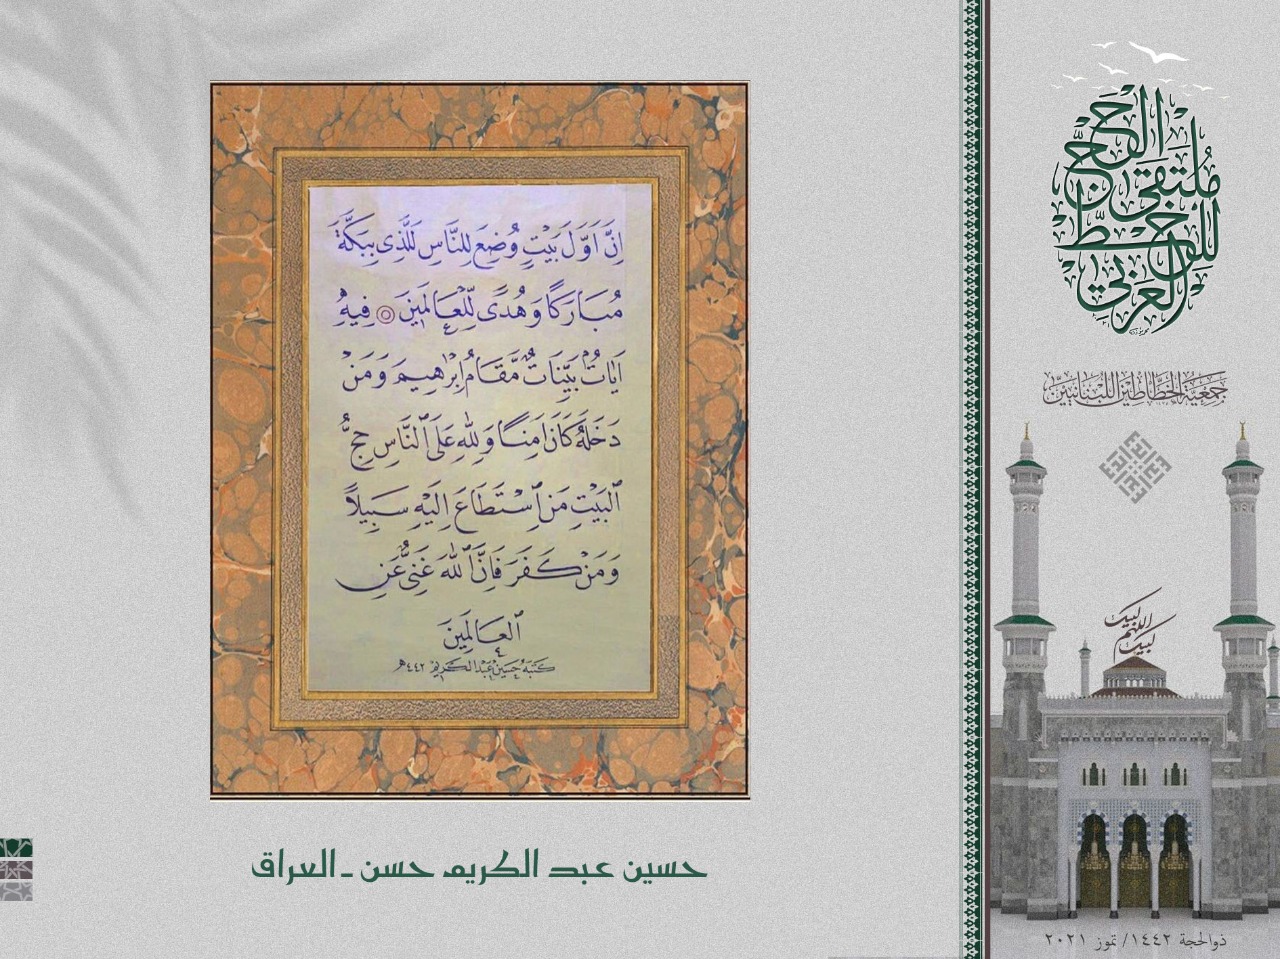 إِنَّ أَوَّلَ بَيْتٍ وُضِعَ لِلنَّاسِ لَلَّذِي بِبَكَّةَ
مُبَارَكًا وَهُدًى لِّلْعَالَمِينَ فِيهِ
آيَاتٌ بَيِّنَاتٌ مَّقَامُ إِبْرٰهِيمَ وَمَنْ
دَخَلَهُ كَانَ آمِنًا وَلِلّٰهِ عَلَى النَّاسِ حِجُّ
الْبَيْتِ مَنِ اسْتَطَاعَ إِلَيْهِ سَبِيلًا
وَمَنْ كَفَرَ فَإِنَّ اللّٰهَ غَنِيٌّ عَنِ
الْعَالَمِينَ
كتبه حسين عبد الكريم ١٤٤٢هـ
حسين عبد الكريم حسن - العراق
ملتقى الحج
للخط
العربي
جمعية الخطاطين اللبنانيين
لبيك
اللهم
لبيك
ذوالحجة ١٤٤٢/ تموز ٢٠٢١